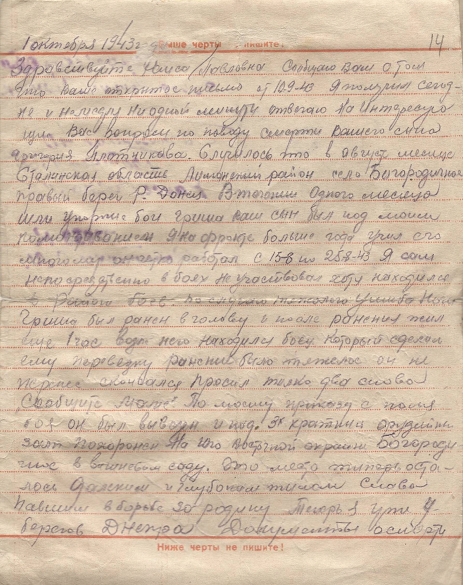 1 октября 1943 г Выше черты не пишите! 14
Здравствуйте Павловна Сообщаю Вам о том
что ваше открытое письмо от 10.9-43 Я получил сегод-
не и немедля ни одной минуты отвечаю На интересую
щие Вас вопросы по поводу смерти Вашего сына
Григория Плотникова. Случилось это в Август месяце
Сталинская область район село Богородичное
правый берег р. Донец В течении одного месяца
шли упорные бои Гриша ваш сын был под моим
командованием Я на фронте больше года учил его
работал с 15-8 по 25-8-43 Я сам
непосредственно в боях не участвовал хотя находился
в районе боев.
Гриша был ранен в голову и после ранения жил
еще 1 час возле него находился боец который сделал
ему перевязку ранение было тяжелое он не
перенес скончался просил только два слова
„Сообщите маме" По моему приказу с поля
боя он был вывезен и под 3х кратный
залп похоронен На юго восточной окраине Богороди
чное в вишневом саду. Это место теперь оста-
лось далеким и глубоким тылом Слава
павшим в борьбе за родину Теперь я уже у
берегов Днепра Документы
Ниже черты не пишите!